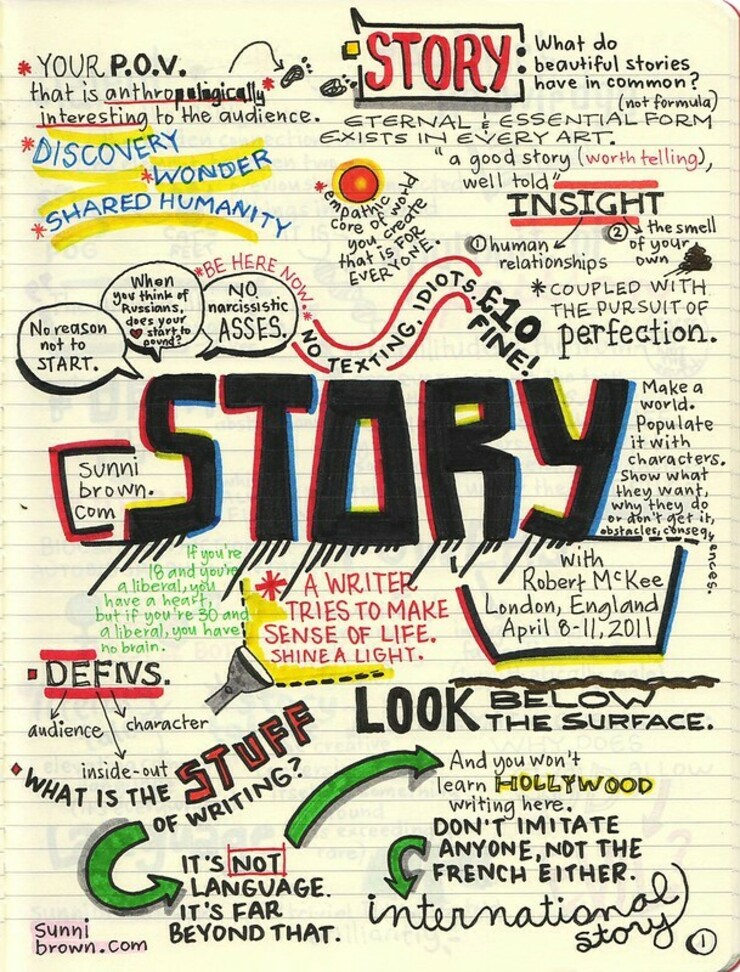 * YOUR P.O.V.
that is anthropologically *
interesting to the audience.
* DISCOVERY
* WONDER
* SHARED HUMANITY
STORY:
What do
beautiful stories
have in common?
(not formula)
ETERNAL & ESSENTIAL FORM
EXISTS IN EVERY ART.
"a good story (worth telling),
well told"
INSIGHT
① human
relationships
② the smell
of your
own
* COUPLED WITH
THE PURSUIT OF
perfection.
* empathic
core of world
you create
that is FOR
EVERYONE.
No reason
not to
START.
When
you think of
Russians,
does your
start to
pound?
NO
narcissistic
ASSES.
*BE HERE NOW.*
NO TEXTING, IDIOTS.
£10
FINE!
STORY
sunni
brown.
com
Make a
world.
Populate
it with
characters.
Show what
they want,
why they do
or don't get it,
obstacles, consequences.
with
Robert McKee
London, England
April 8-11, 2011
If you're
18 and you're
a liberal, you
have a heart,
but if you're 30 and
a liberal, you have
no brain.
* A WRITER
TRIES TO MAKE
SENSE OF LIFE.
SHINE A LIGHT.
DEFNS.
audience
character
inside-out
LOOK BELOW
THE SURFACE.
WHAT IS THE STUFF
OF WRITING?
IT'S NOT
LANGUAGE.
IT'S FAR
BEYOND THAT.
And you won't
learn HOLLYWOOD
writing here.
DON'T IMITATE
ANYONE, NOT THE
FRENCH EITHER.
international
story
sunni
brown.com
①